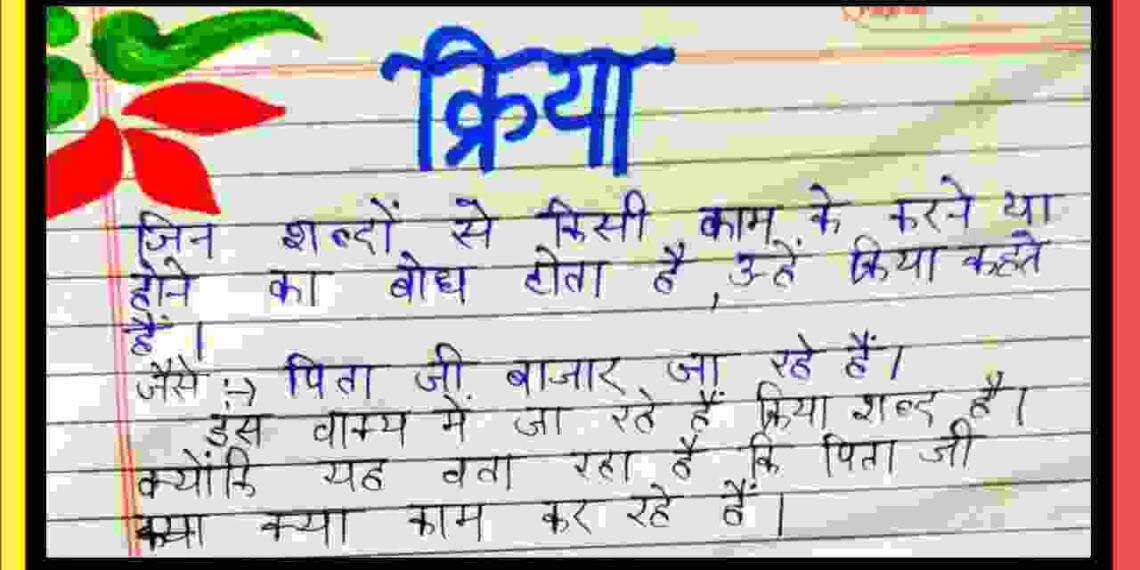 क्रिया
जिन शब्दों से किसी काम के करने या
होने का बोध होता है, उन्हें क्रिया कहते
हैं।
जैसे :-> पिता जी बाजार जा रहे हैं।
इस वाक्य में जा रहे हैं क्रिया शब्द है।
क्योंकि यह बता रहा है कि पिता जी
क्या क्या काम कर रहे हैं।